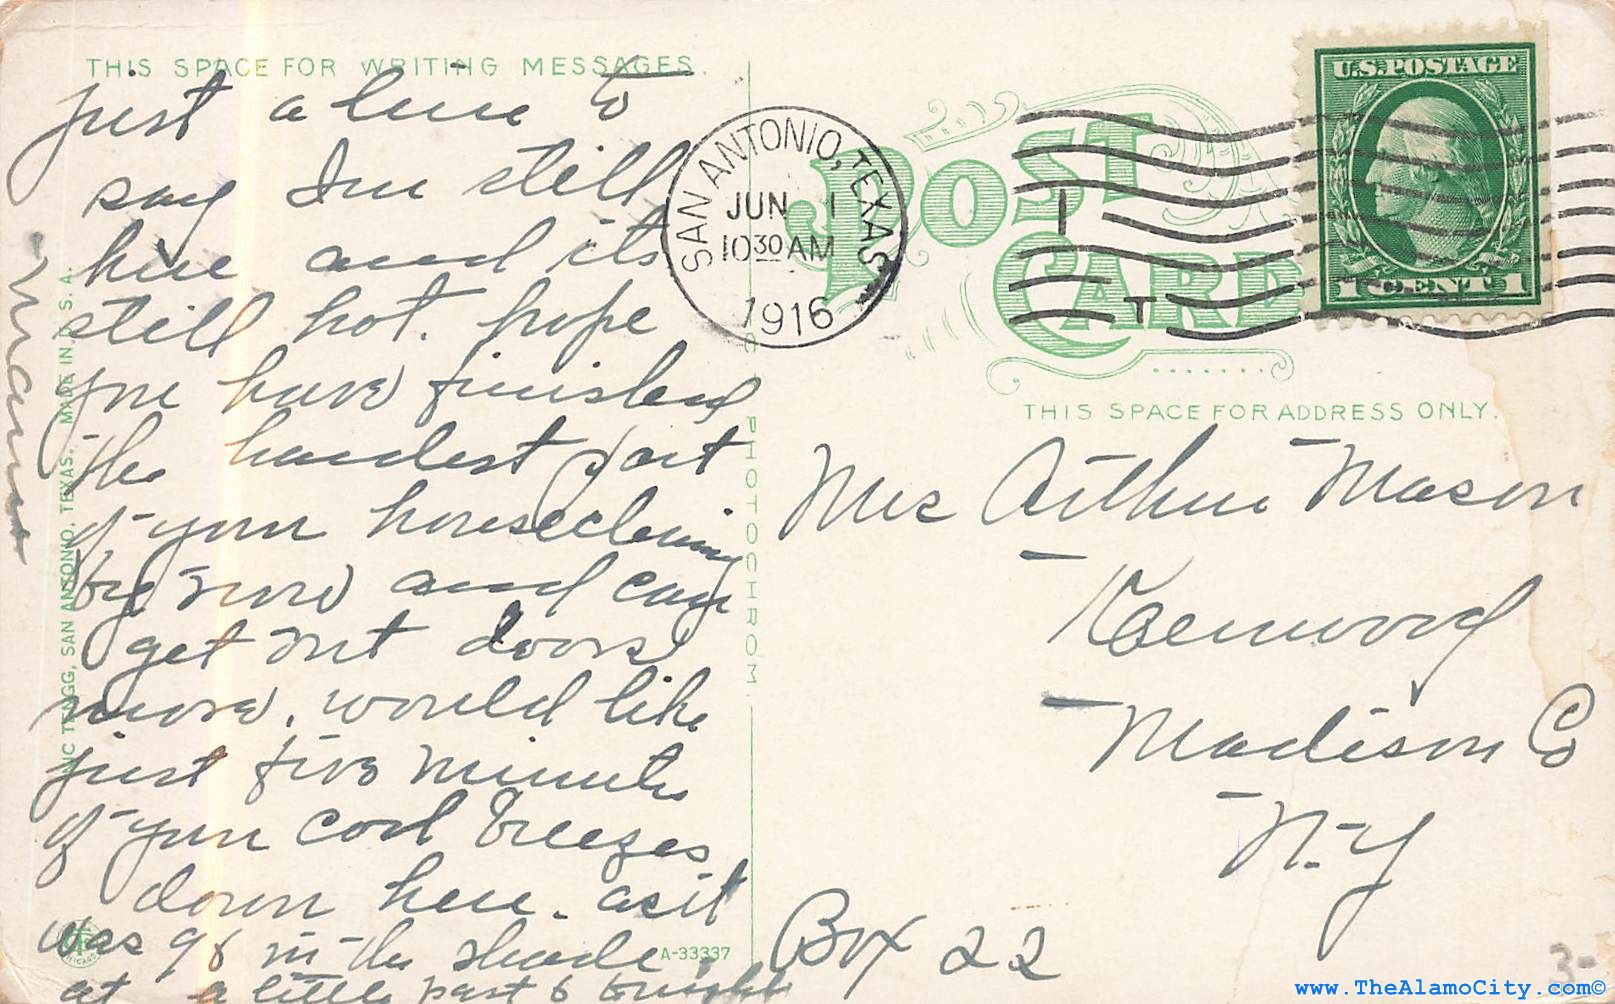 THIS SPACE FOR WRITING MESSAGES.
just a line to
say I'm still
here and its
still hot. hope
you have finished
the hardest part
of your housecleaning
by now and can
get out doors
more. would like
just five minutes
of your cool breezes
down here. as it
was 98 in the shade
at a little past 6 tonight
NIC TENGG, SAN ANTONIO, TEXAS. MADE IN U.S.A.
PHOTOCHROM.
A-33337
SAN ANTONIO, TEXAS
JUN 1
10 30 AM
1916
POST
CARD
U.S. POSTAGE
1 CENT 1
THIS SPACE FOR ADDRESS ONLY.
Mrs Arthur Mason
Kenwood
Madison Co
N-Y
Box 22
3-
www.TheAlamoCity.com©